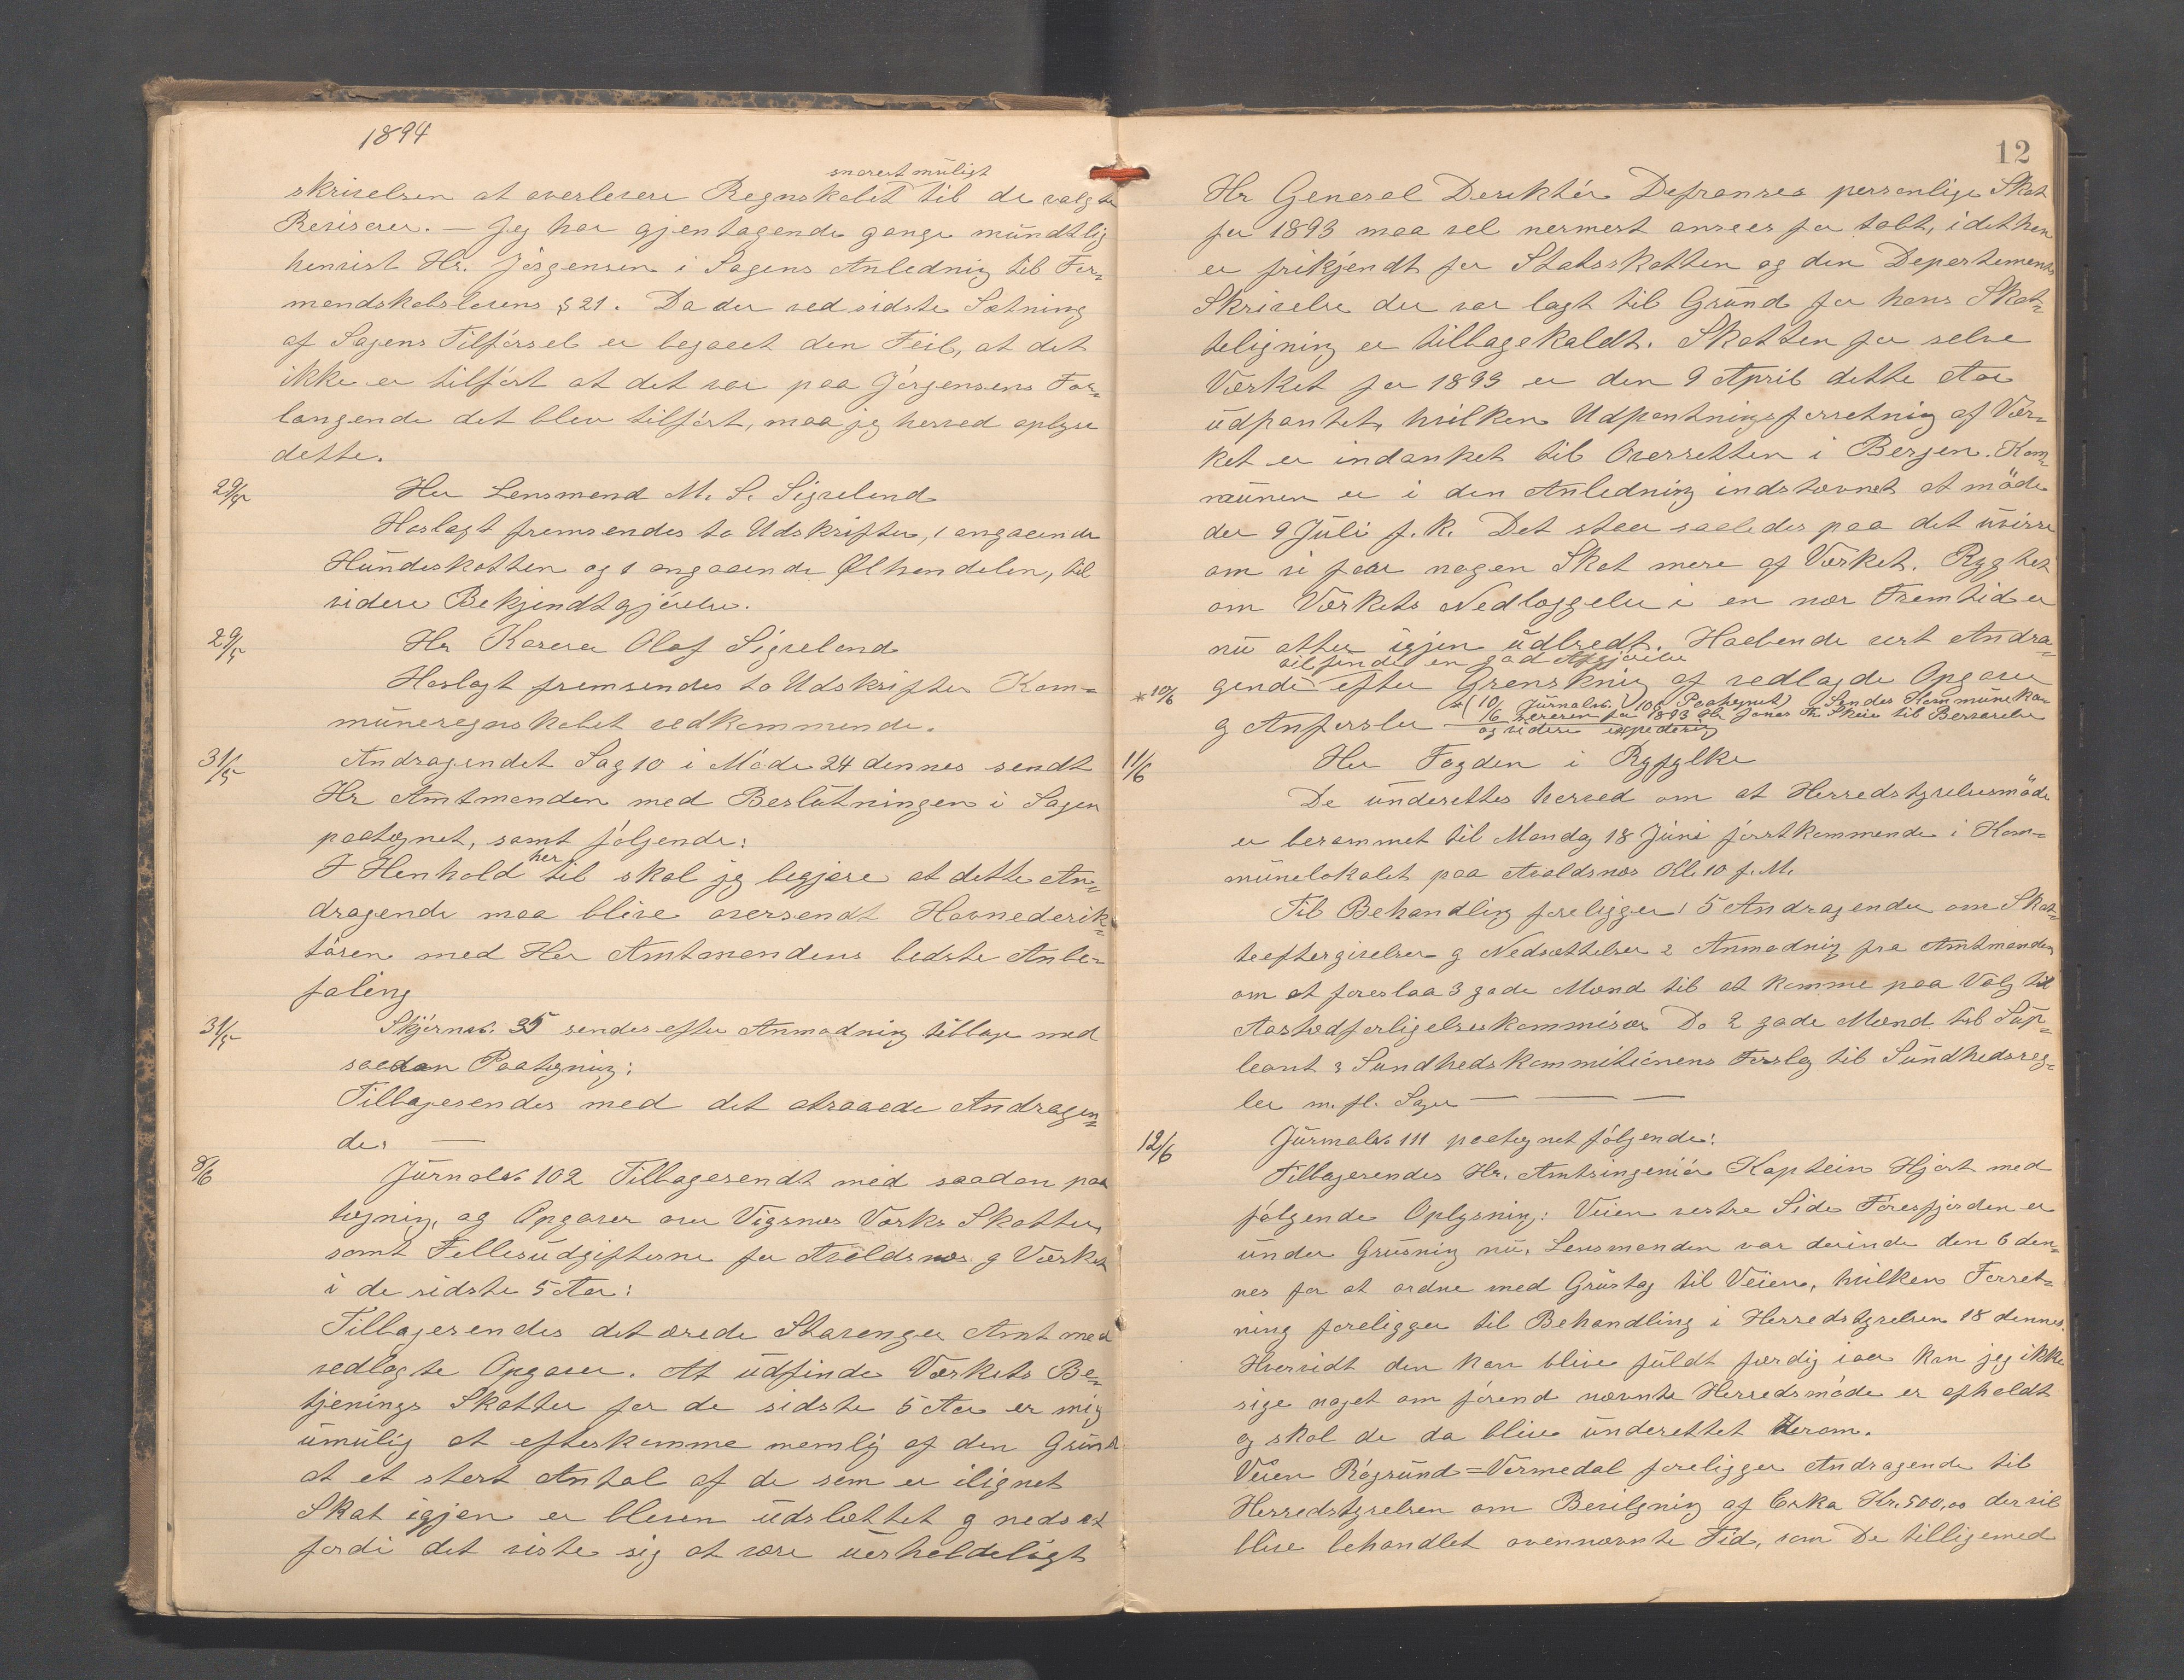 1894
snarest muligt
skrivelsen at overlevere Regnskabet til de valgte
Revisorer. — Jeg har gjentagende gange mundtlig
henvist Hr. Jørgensen i Sagens Anledning til For=
mandskabslovens § 21. Da der ved sidste Sætning
af Sagens Tilførsel er begaaet den Feil, at det
ikke er tilført at det var paa Jørgensens For=
langende det blev tilført, maa jeg herved oplyse
dette.
29/5 Herr Lensmand M. S. Sigveland
Hoslagt fremsendes to Udskrifter, 1 angaaende
Hundeskatten og 1 angaaende Ølhandelen, til
videre Bekjendtgjørelse.
29/5 Hr Kaserer Olaf Sigveland
Hoslagt fremsendes to Udskrifter Kom=
muneregnskabet vedkommende.
31/5 Andragendet Sag 10 i Møde 24 dennes sendt
Hr Amtmanden med Beslutningen i Sagen
paategnet, samt følgende:
I Henhold her til skal jeg begjære at dette An=
dragende maa blive oversendt Havnederik=
tøren med Her Amtmandens bedste Anbe=
faling
31/5 Skjørnab. 35 sendes efter Anmodning tilbage med
saadan Paategning:
Tilbagesendes med det attraaede Andragen=
de. —
8/6 Jurnaln. 102 Tilbagesendt med saadan paa
tegning, og Opgaver over Vigsnæs Værks Skatter
samt Fellesudgifterne for Avaldsnæs og Værket
i de sidste 5 Aar:
Tilbagesendes det ærede Stavanger Amt med
vedlagte Opgaver. At udfinde Værkets Be=
tjenings Skatter for de sidste 5 Aar er mig
umulig at efterkomme nemlig af den Grund
at et stort Antal af de som er ilignet
Skat igjen er bleven udslettet og nedsat
fordi det viste sig at være uerholdeligt
12
Hr General Derektør Defrances personlige Skat
for 1893 maa vel nermest ansees for tabt, idet han
er frikjendt for Statsskatten og den Departements
Skrivelse der var lagt til Grund for hans Skat=
teligning er tilbagekaldt. Skatten for selve
Værket for 1893 er den 9 April dette Aar
udpantet, hvilken Udpantningsforretning af Vær=
ket er indanket til Overretten i Bergen. Kom=
munen er i den Anledning indstævnet at møde
der 9 Juli f. k. Det staar saaledes paa det uvisse
om vi faar nogen Skat mere af Værket. Rygtet
om Værkets Nedlæggelse i en nær Fremtid er
nu atter igjen udbredt. Haabende vort Andra=
vil finde en god Afgjørelse
gende efter Grenskning af vedlagde Opgaver
og Anførsler
* 10/6 *(10/6 Jurnaln. 106 Paategnet) Sendes Kommuneka=
sereren for 1893 Hr Jonas Th Skeie til Besvarelse
og videre expedering
11/6 Her Fogden i Ryfylke
De underettes herved om at Herredstyrelsesmøde
er berammet til Mandag 18 Juni førstkommende i Kom=
munelokalet paa Avaldsnæs Kl. 10 f. M.
Til Behandling foreligger 15 Andragender om Skat=
teeftergivelser og Nedsættelser 2 Anmodning fra Amtmanden
om at foreslaa 3 gode Mænd til at komme paa Valg til
Aastedforligelseskommisær Do 2 gode Mænd til Sup=
leant 3 Sundhedskommitionens Forslag til Sundhedsreg=
ler m. fl. Sager — — —
12/6 Jurnaln. 111 paategnet følgende:
Tilbagesendes Hr. Amtsingeniør Kaptein Hjort med
følgende Oplysning: Veien vestre Side Føresfjorden er
under Grusning nu. Lensmanden var derinde den 6 den=
nes for at ordne med Grustag til Veien, hvilken Forret=
ning foreligger til Behandling i Herredstyrelsen 18 dennes.
Hvorvidt den kan blive fuldt færdig iaar kan jeg ikke
sige noget om førend nævnte Herredsmøde er afholdt
og skal de da blive underettet derom.
Veien Røgsund=Vormedal foreligger Andragende til
Herredstyrelsen om Bevilgning af Cirka Kr. 500,00 der vil
blive behandlet ovennævnte Tid, som De tilligemed